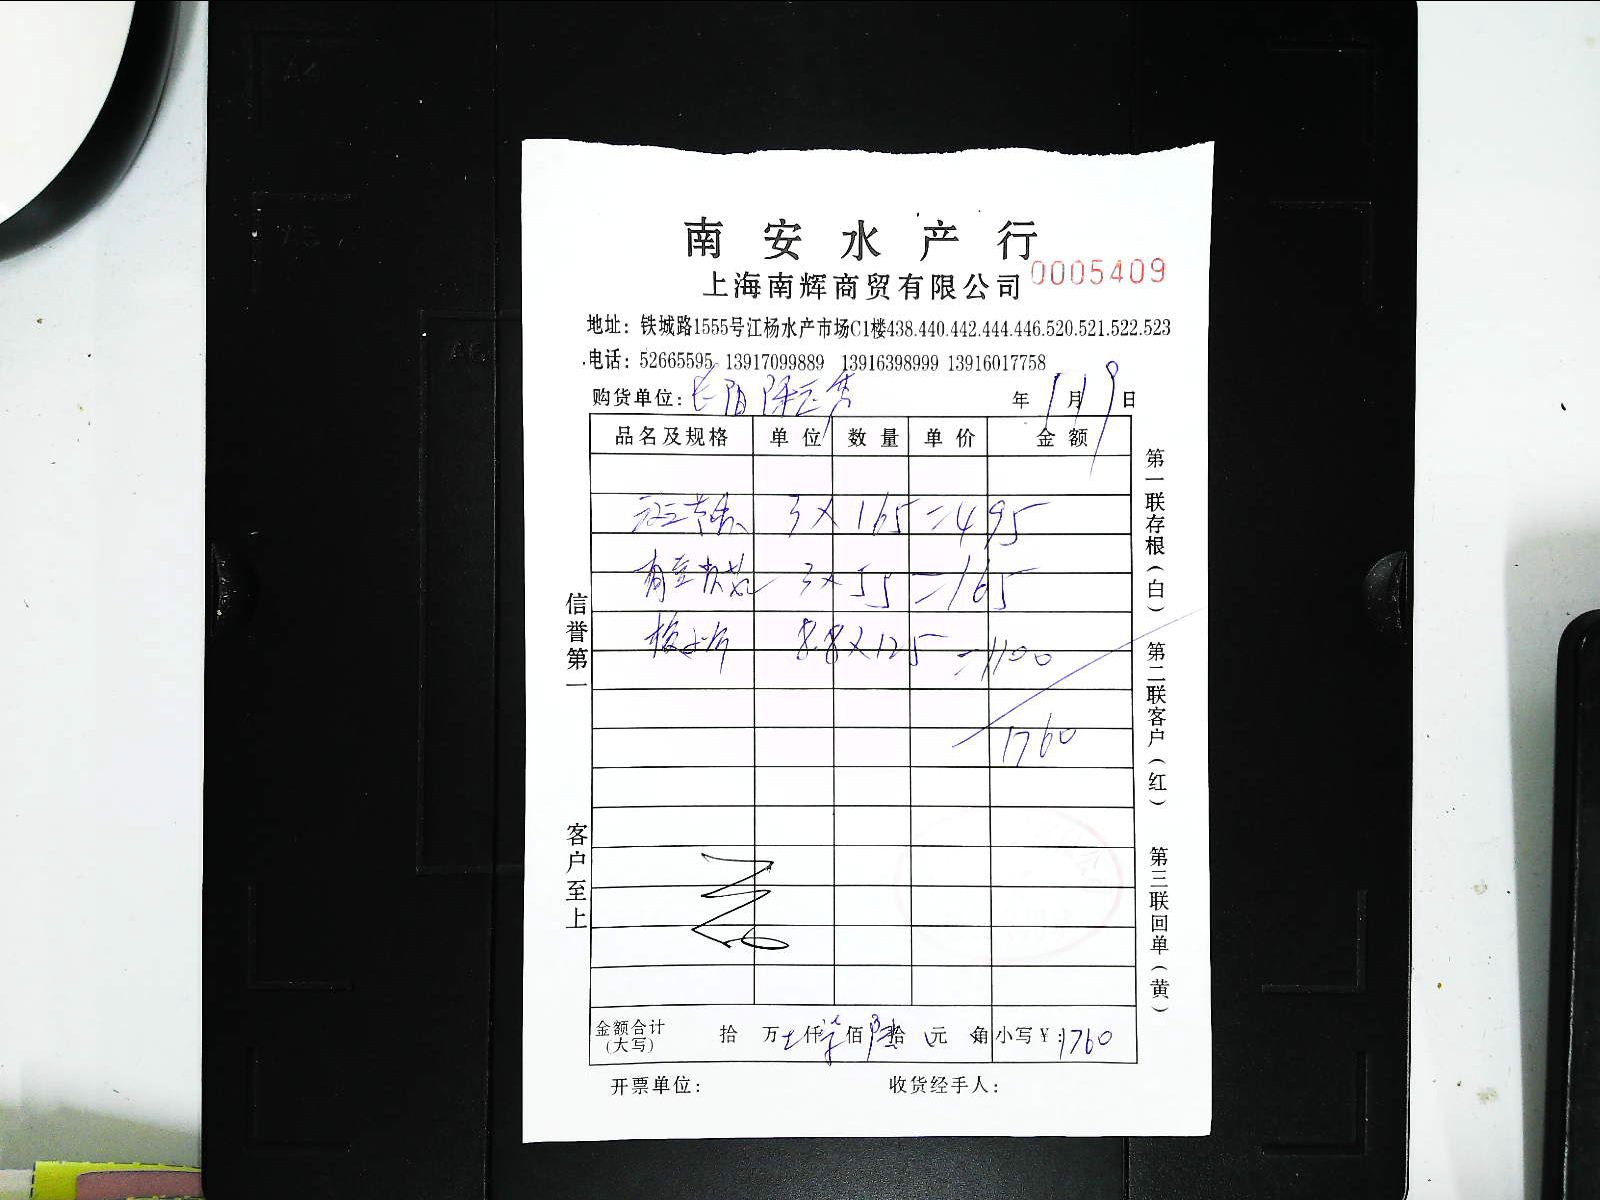 南安水产行
上海南辉商贸有限公司 0005409
地址：铁城路1555号江杨水产市场C1楼438.440.442.444.446.520.521.522.523
电话：52665595 13917099889 13916398999 13916017758
购货单位： 年 1月19日
品名及规格 单位 数量 单价 金额
3×165=495
3×55=165
8.8×125=1100
1760
金额合计（大写） 拾 万 仟 佰 拾 元 角 小写￥：1760
开票单位： 收货经手人：
信誉第一 客户至上
第一联存根（白） 第二联客户（红） 第三联回单（黄）